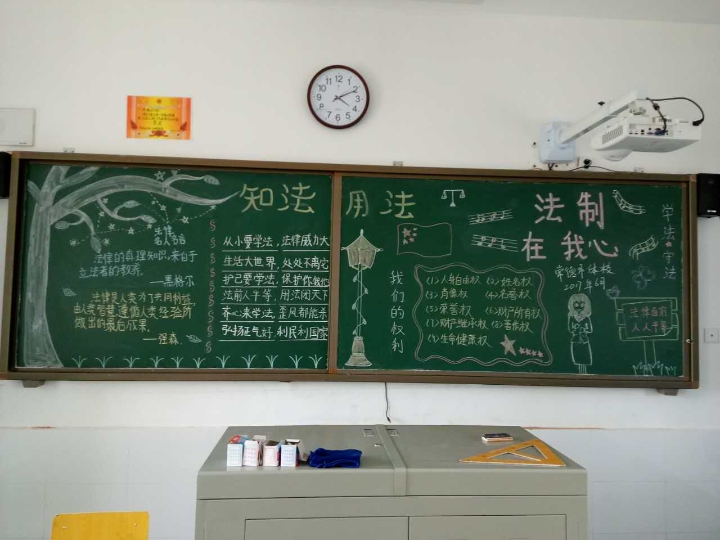 知法 用法
法律
名人名言
法律的真理知识,来自于
立法者的教养。
黑格尔
法律是人类为了共同利益,
由人类智慧遵循人类经验所
做出的最后成果。
——强森
从小要学法,法律威力大
生活大世界,处处不离它
护己要学法,保护你我他
法前人平等,用法闭天下
齐心来学法,歪风都能杀
弘扬正气好,利民利国家
我们的权利
(1)人身自由权 (2)姓名权
(3)肖像权 (4)名誉权
(5)荣誉权 (6)财产所有权
(7)财产继承权 (8)著作权
(9)生命健康权
法制
在我心
常德市体校
2017年6月
学法·守法
法律面前
人人平等
12
1
2
3
4
5
6
7
8
9
10
11